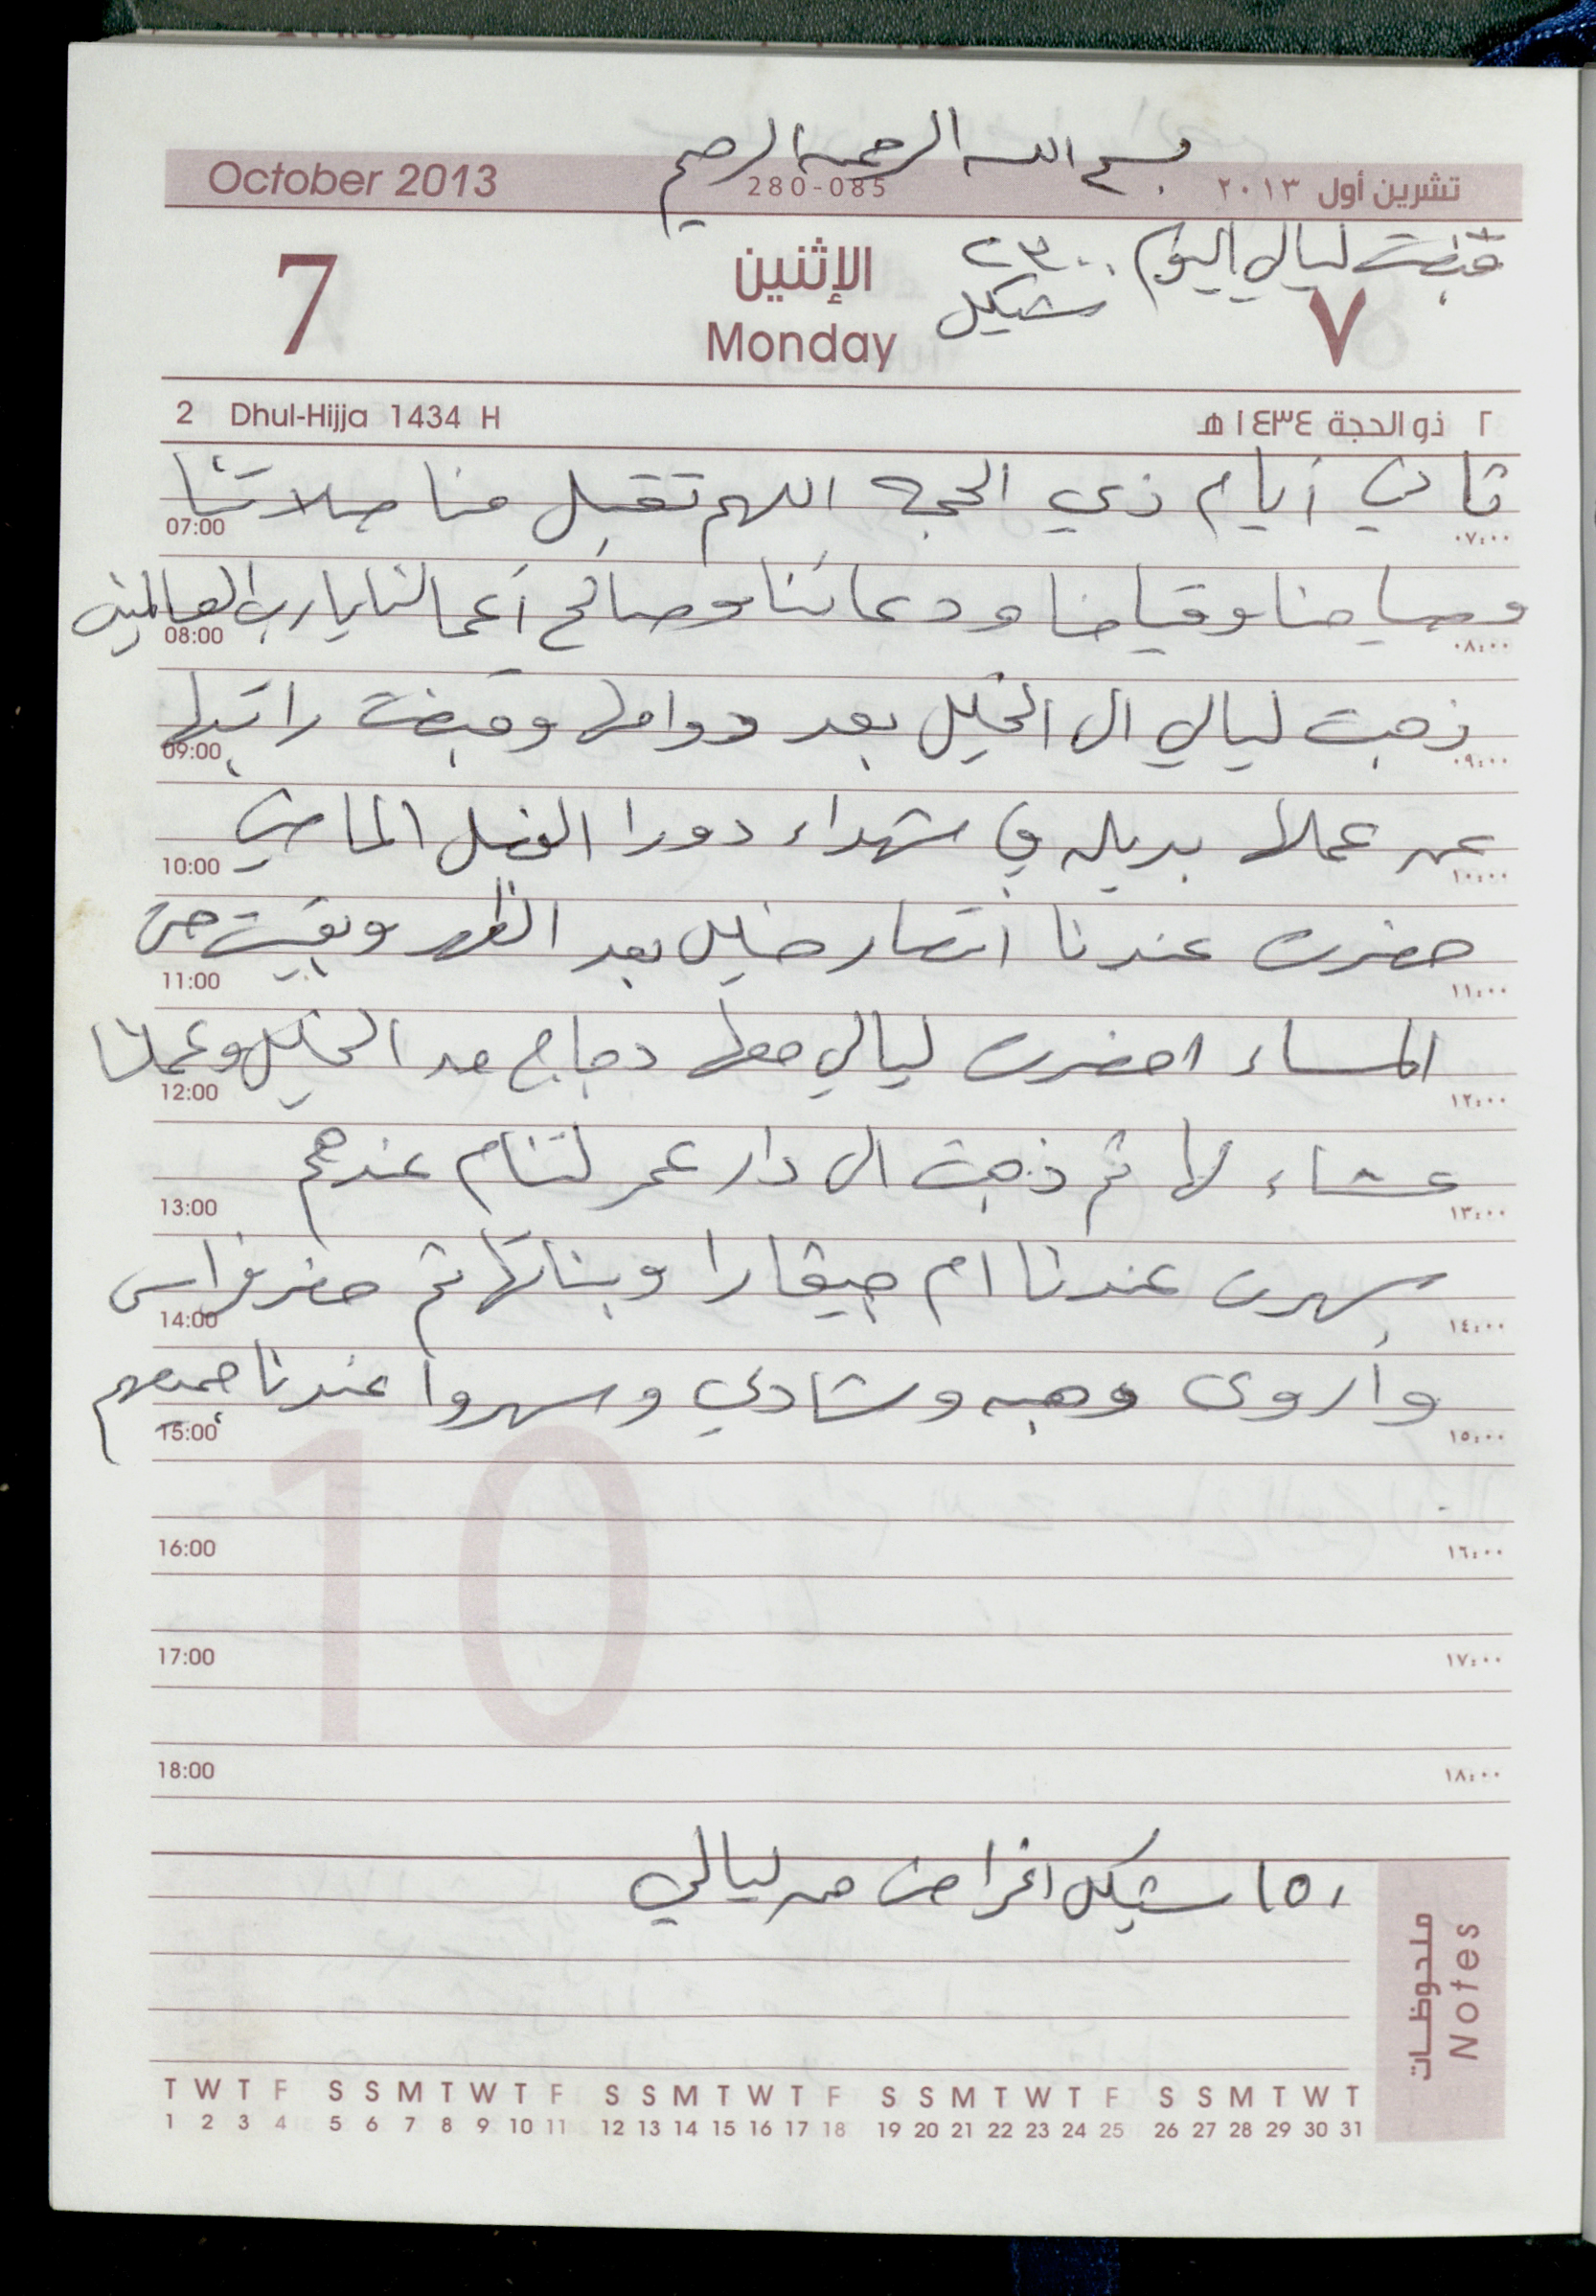 بسم الله الرحمن الرحيم
October 2013 280-085 تشرين أول ٢٠١٣
قبضت ليالي اليوم ٢٣٠٠
شيكل
7 الإثنين ٧
Monday
2 Dhul-Hijja 1434 H ٢ ذو الحجة ١٤٣٤ هـ
ثاني أيام ذي الحجه اللهم تقبل منا صلاتنا
07:00 ٠٧:٠٠
وصيامنا وقيامنا ودعائنا وصالح أعمالنا يا رب العالمين
08:00 ٠٨:٠٠
ذهبت ليالي الى الخليل بعد دوامها وقبضت راتبها
09:00 ٠٩:٠٠
عن عملها بديله في شهداء دورا الفصل الماضي
10:00 ١٠:٠٠
حضرت عندنا انتصار خليل بعد الظهر وبقيت حتى
11:00 ١١:٠٠
المساء احضرت ليالي معها دجاج من الخليل وعملنا
12:00 ١٢:٠٠
عشاء لها ثم ذهبت الى دار عمر لتنام عندهم
13:00 ١٣:٠٠
سهرت عندنا ام جيفارا وبناتها ثم حضر فراس
14:00 ١٤:٠٠
وأروى وهبه وشادي وسهروا عندنا جميعهم
15:00 ١٥:٠٠
10
16:00 ١٦:٠٠
17:00 ١٧:٠٠
18:00 ١٨:٠٠
١٥٠ شيكل اغراض من ليالي
ملحوظات
Notes
T W T F S S M T W T F S S M T W T F S S M T W T F S S M T W T
1 2 3 4 5 6 7 8 9 10 11 12 13 14 15 16 17 18 19 20 21 22 23 24 25 26 27 28 29 30 31